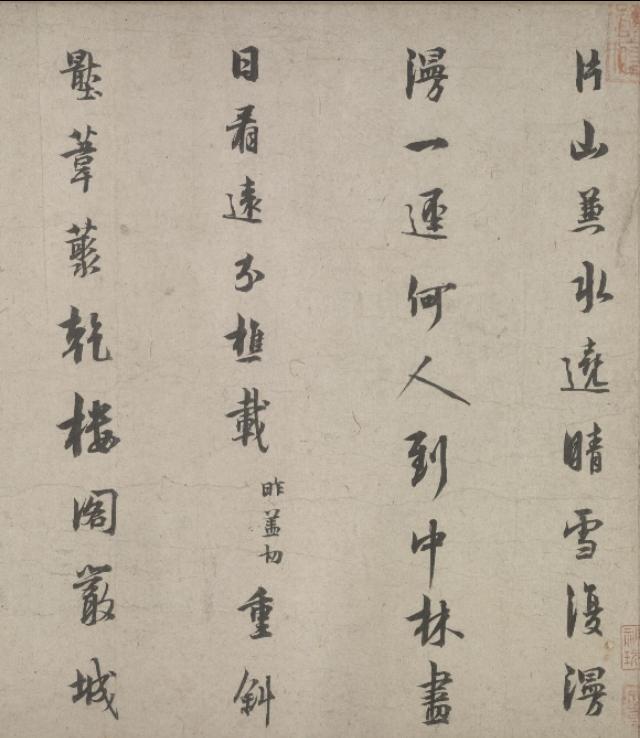 片山兼水遶晴雪復漫
漫一逕何人到中林盡
日看遠分樵載昨盖切重斜
壓葦叢乾樓閣嚴城